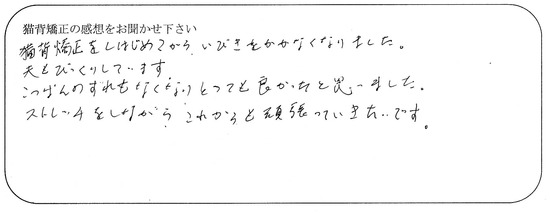 猫背矯正の感想をお聞かせ下さい
猫背矯正をしはじめてから、いびきをかかなくなりました。
夫もびっくりしています
こつばんのずれもなくなりとっても良かったと思いました。
ストレッチをしながら これからも頑張っていきたいです。